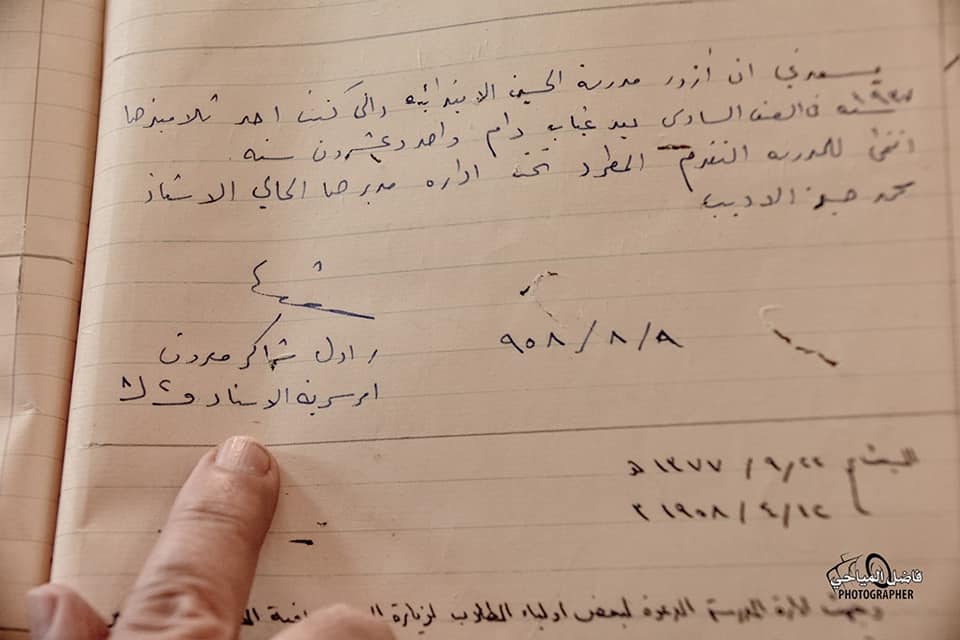 يسعدني ان أزور مدرسة الحسين الابتدائيه والتي كنت احد تلاميذها
سنه ١٩٣٧ في الصف السادس بعد غياب دام واحد وعشرون سنه
اتمنى للمدرسه التقدم المطرد تحت اداره مديرها الحالي الاستاذ
محمد حسين الاديب
ر اول شاكر
امر سرية الاسناد ف ٢ ل ٨
٩٥٨/٨/٩
١٣٧٧/٩/٢٢ هـ
١٩٥٨/٤/١٢ م
فاضل المياحي
PHOTOGRAPHER
وجهت ادارة المدرسة الدعوة لبعض اولياء الطلاب لزيارة